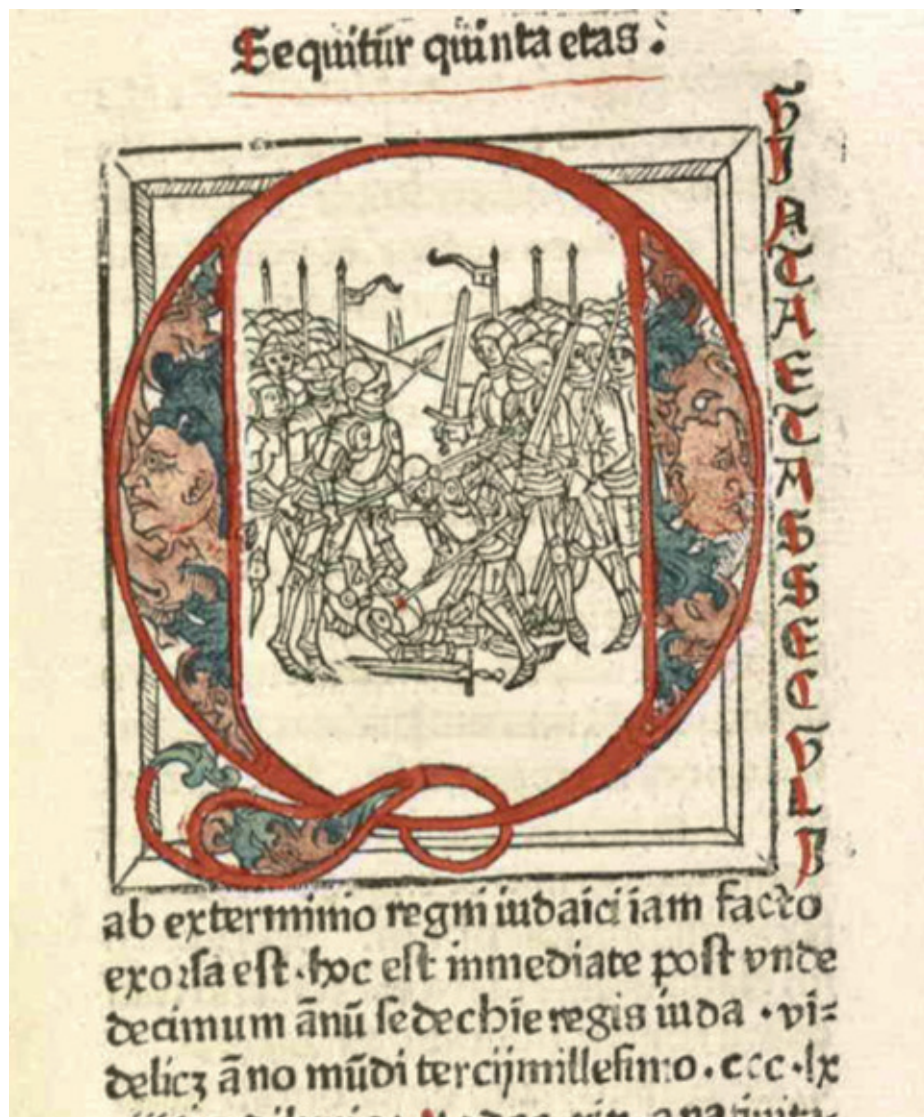 Sequitur quinta etas .
QVINTA ETAS SECVLI
ab exterminio regni iudaici iam facto
exorsa est . hoc est inmediate post vnde
decimum ãnũ sedechie regis iuda . vi=
delicz ãno mũdi tercijmillesimo . ccc . lx